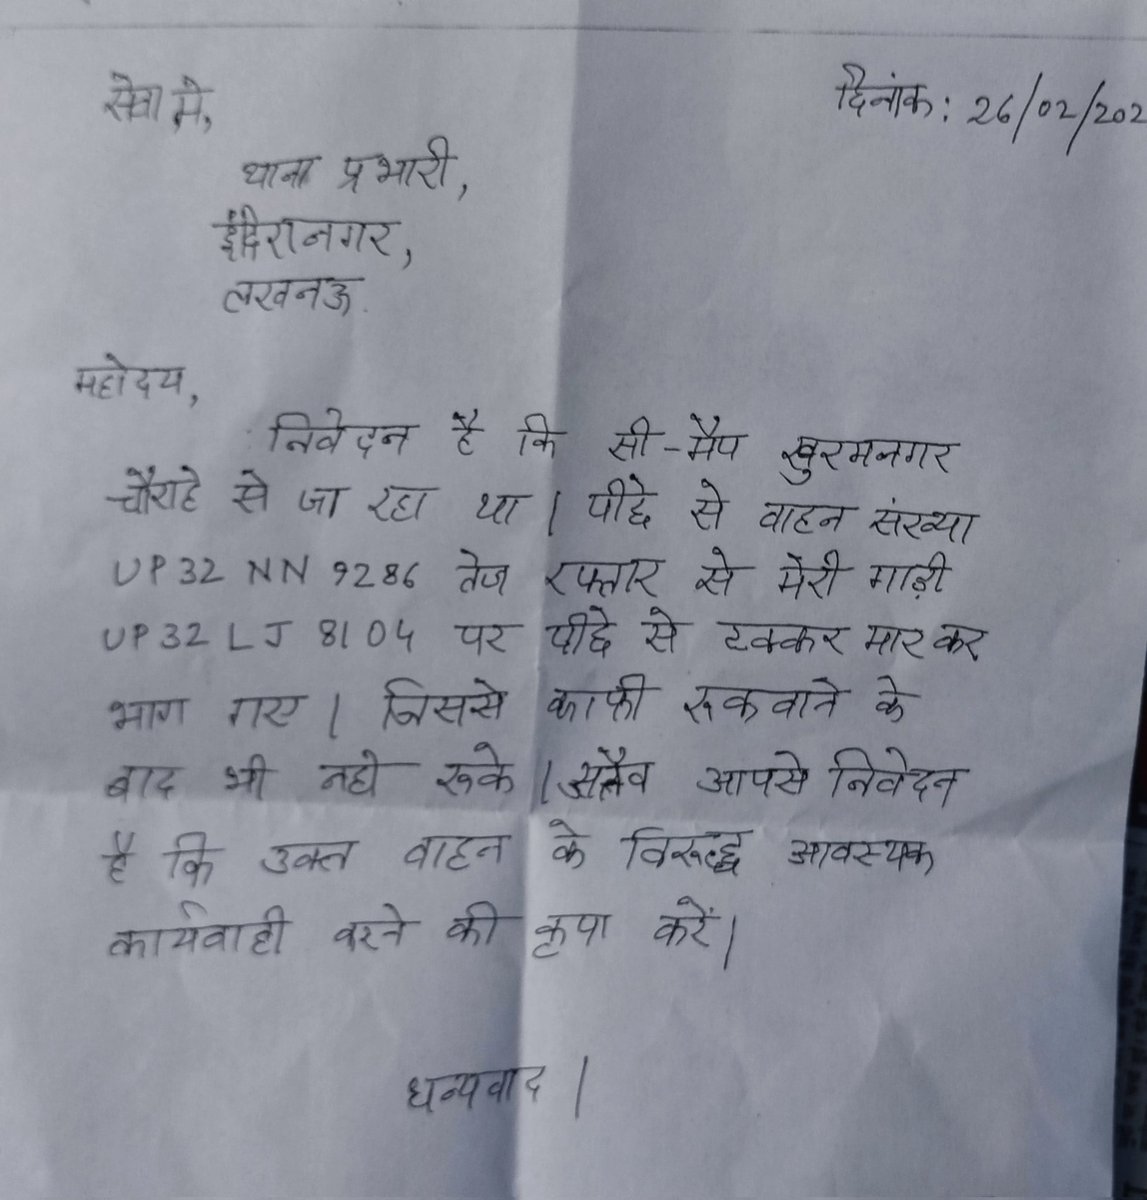 सेवा मे,
दिनांक: 26/02/202
थाना प्रभारी,
इंदिरानगर,
लखनऊ.
महोदय,
निवेदन है कि सी-मैप खुरमनगर
चौराहे से जा रहा था। पीछे से वाहन संख्या
UP32 NN 9286 तेज रफ्तार से मेरी गाड़ी
UP32 LJ 8104 पर पीछे से टक्कर मार कर
भाग गए। जिससे काफी रूकवाने के
बाद भी नही रूके। अतैव आपसे निवेदन
है कि उक्त वाहन के विरूद्ध आवस्यक
कार्यवाही करने की कृपा करें।
धन्यवाद।